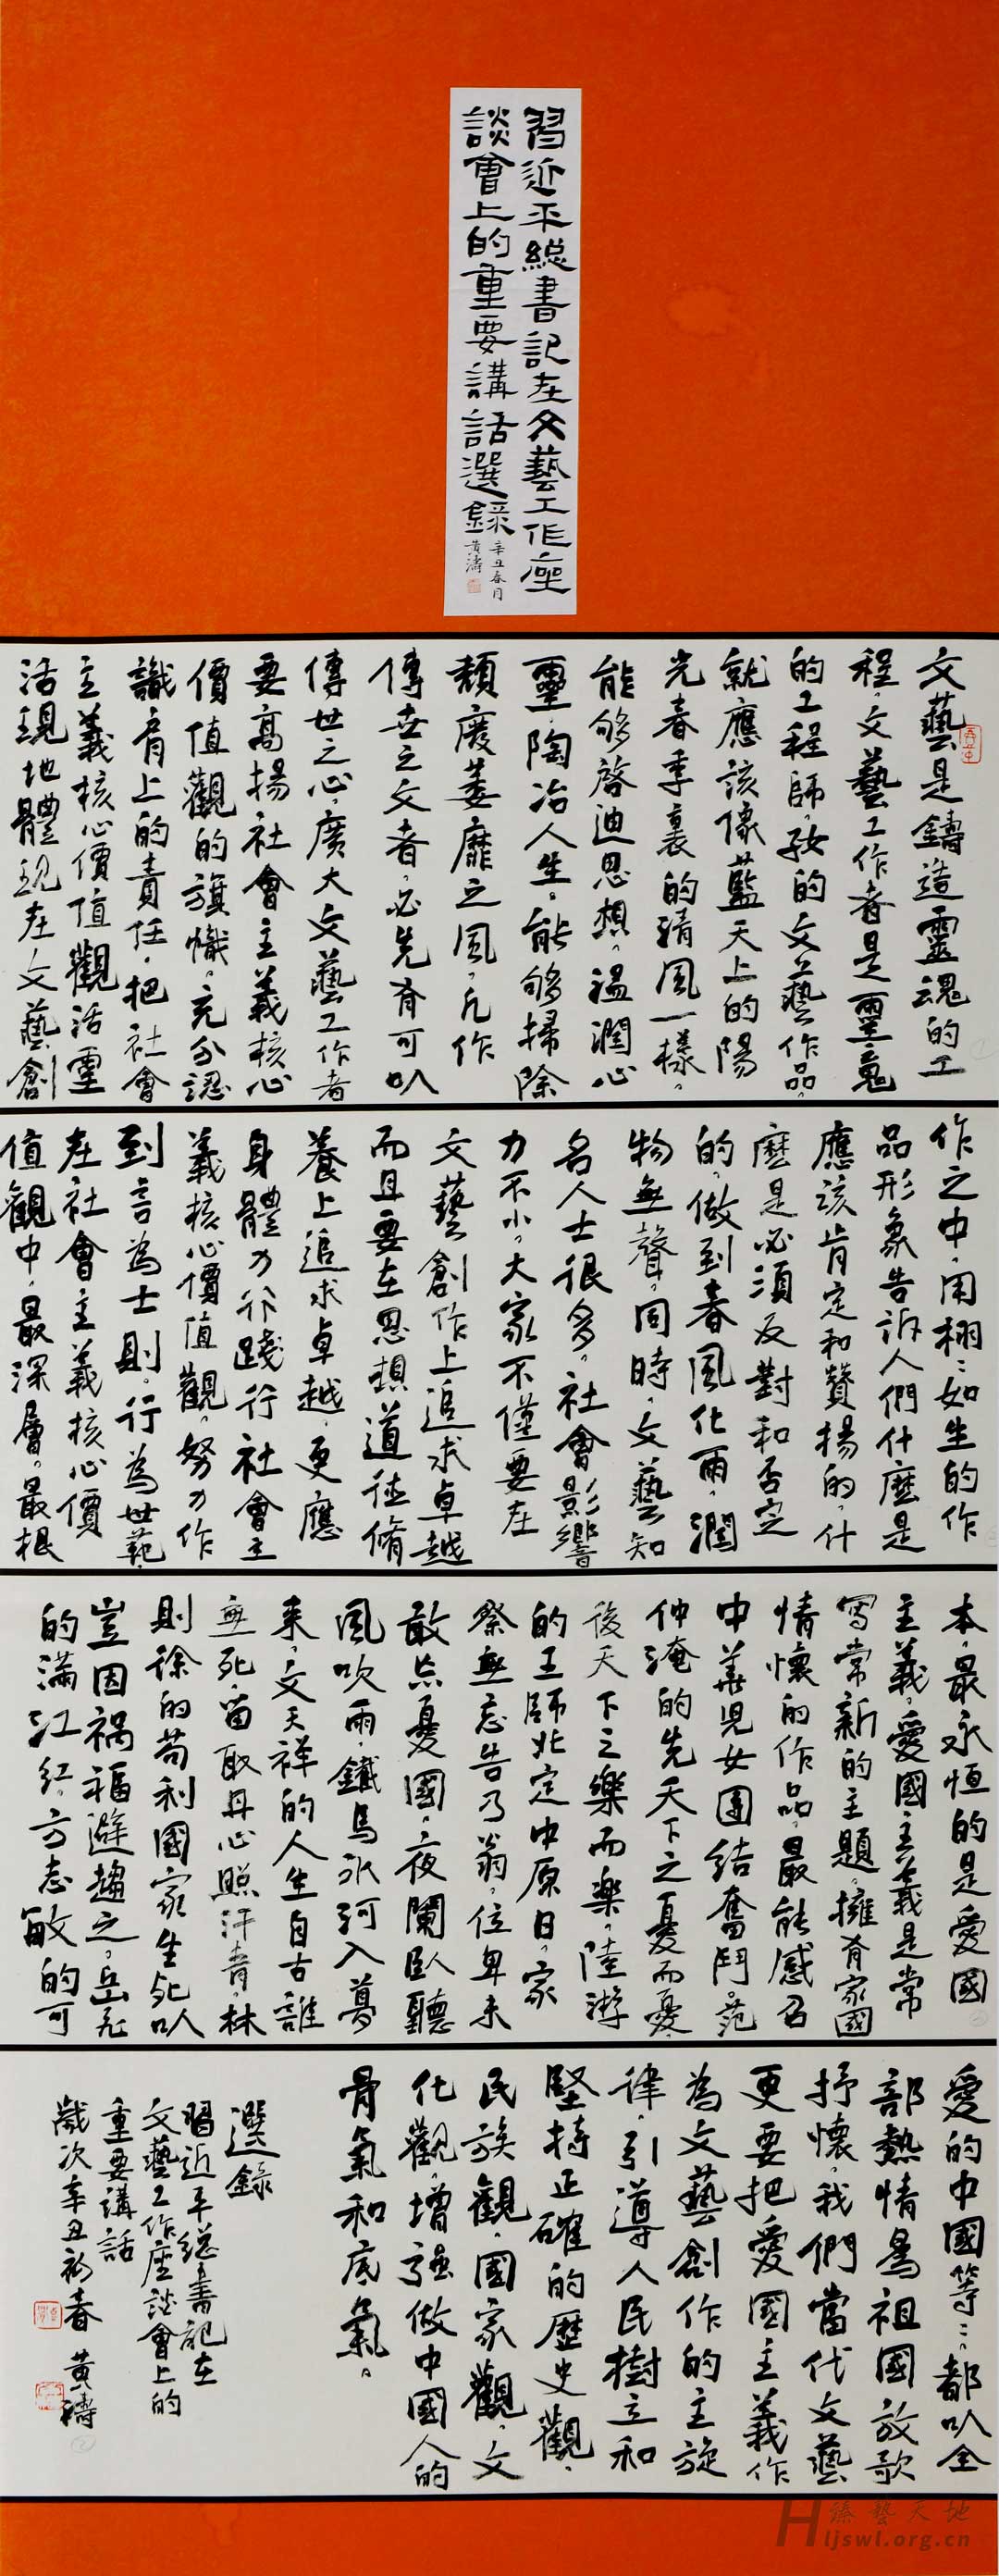 習近平總書記在文藝工作座
談會上的重要講話選錄
辛丑春月
黃濤
文藝是鑄造靈魂的工
程，文藝工作者是靈魂
的工程師。好的文藝作品，
就應該像藍天上的陽
光春季裏的清風一樣，
能够啓迪思想，溫潤心
靈，陶冶人生，能够掃除
頹廢萎靡之風。凡作
傳世之文者，必先有可以
傳世之心，廣大文藝工作者
要高揚社會主義核心
價值觀的旗幟。充分認
識肩上的責任，把社會
主義核心價值觀活靈
活現地體現在文藝創
作之中，用栩〻如生的作
品形象告訴人們什麼是
應該肯定和贊揚的，什
麼是必須反對和否定
的，做到春風化雨，潤
物無聲，同時，文藝知
名人士很多，社會影響
力不小，大家不僅要在
文藝創作上追求卓越
而且要在思想道德脩
養上追求卓越，更應
身體力行踐行社會主
義核心價值觀，努力作
到言為士則，行為世範，
在社會主義核心價
值觀中，最深層，最根
本，最永恒的是愛國
主義，愛國主義是常
寫常新的主題，擁有家國
情懷的作品，最能感召
中華兒女團結奮鬥。范
仲淹的先天下之憂而憂
後天下之樂而樂，陸游
的王師北定中原日，家
祭無忘告乃翁，位卑未
敢忘憂國，夜闌臥聽
風吹雨，鐵馬冰河入夢
来，文天祥的人生自古誰
無死，留取丹心照汗青，林
則徐的苟利國家生死以
豈因禍福避趨之，岳飛
的滿江紅，方志敏的可
愛的中國等〻，都以全
部熱情為祖國放歌
抒懷，我們當代文藝
更要把愛國主義作
為文藝創作的主旋
律，引導人民樹立和
堅持正確的歷史觀、
民族觀，國家觀，文
化觀，增強做中國人的
骨氣和底氣。
選錄
習近平總書記在
文藝工作座談會上的
重要講話
歲次辛丑初春 黃濤
臻藝天地
Hljswl.org.cn